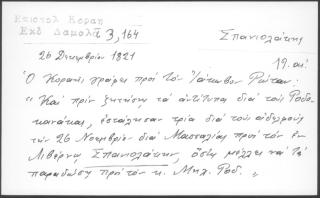 Επιστολ Κοραη
Εκδ Δαμαλᾶ 3, 164
Σπανιολάκης
26 Δεκεμβρίου 1821
19. αἰ
Ὁ Κοραῆς γράφει πρός τόν Ἰάκωβον Ρώταν:
"Καί πρίν ζητήσῃς τά ἀντίτυπα διά τούς Ροδο-
κανάκας, ἐστάλησαν τρία διά τούς ἀδελφούς
τῶν 26 Νοεμβρίου διά Μασσαλίας πρός τόν ἐν
Λιβόρνῳ Σπανιολάκην, ὅστις μέλλει νά τά
παραδώσῃ πρός τόν κ. Μιχ. Ροδ. "